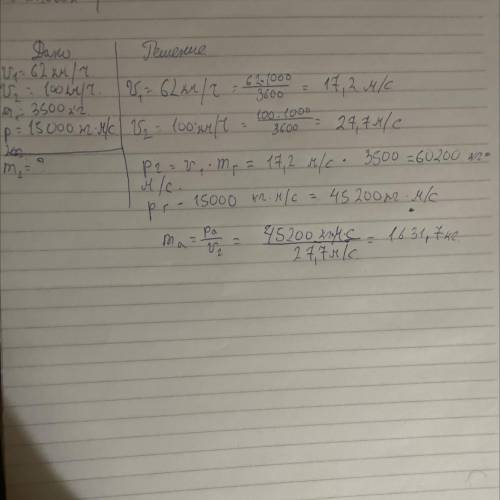 Дано
Решение
v₁ = 62 км/ч
v₂ = 100 км/ч.
m₁ = 3500 кг.
p = 15000 кг·м/с
m₂ = ?
v₁ = 62 км/ч = 62·1000/3600 = 17,2 м/с
v₂ = 100 км/ч = 100·1000/3600 = 27,7 м/с
pг = v₁ · mг = 17,2 м/с · 3500 = 60200 кг·
м/с.
pг - 15000 кг·м/с = 45200 кг·м/с
mа = pа/v₂ = 45200 кг·м/с / 27,7 м/с = 1631,7 кг